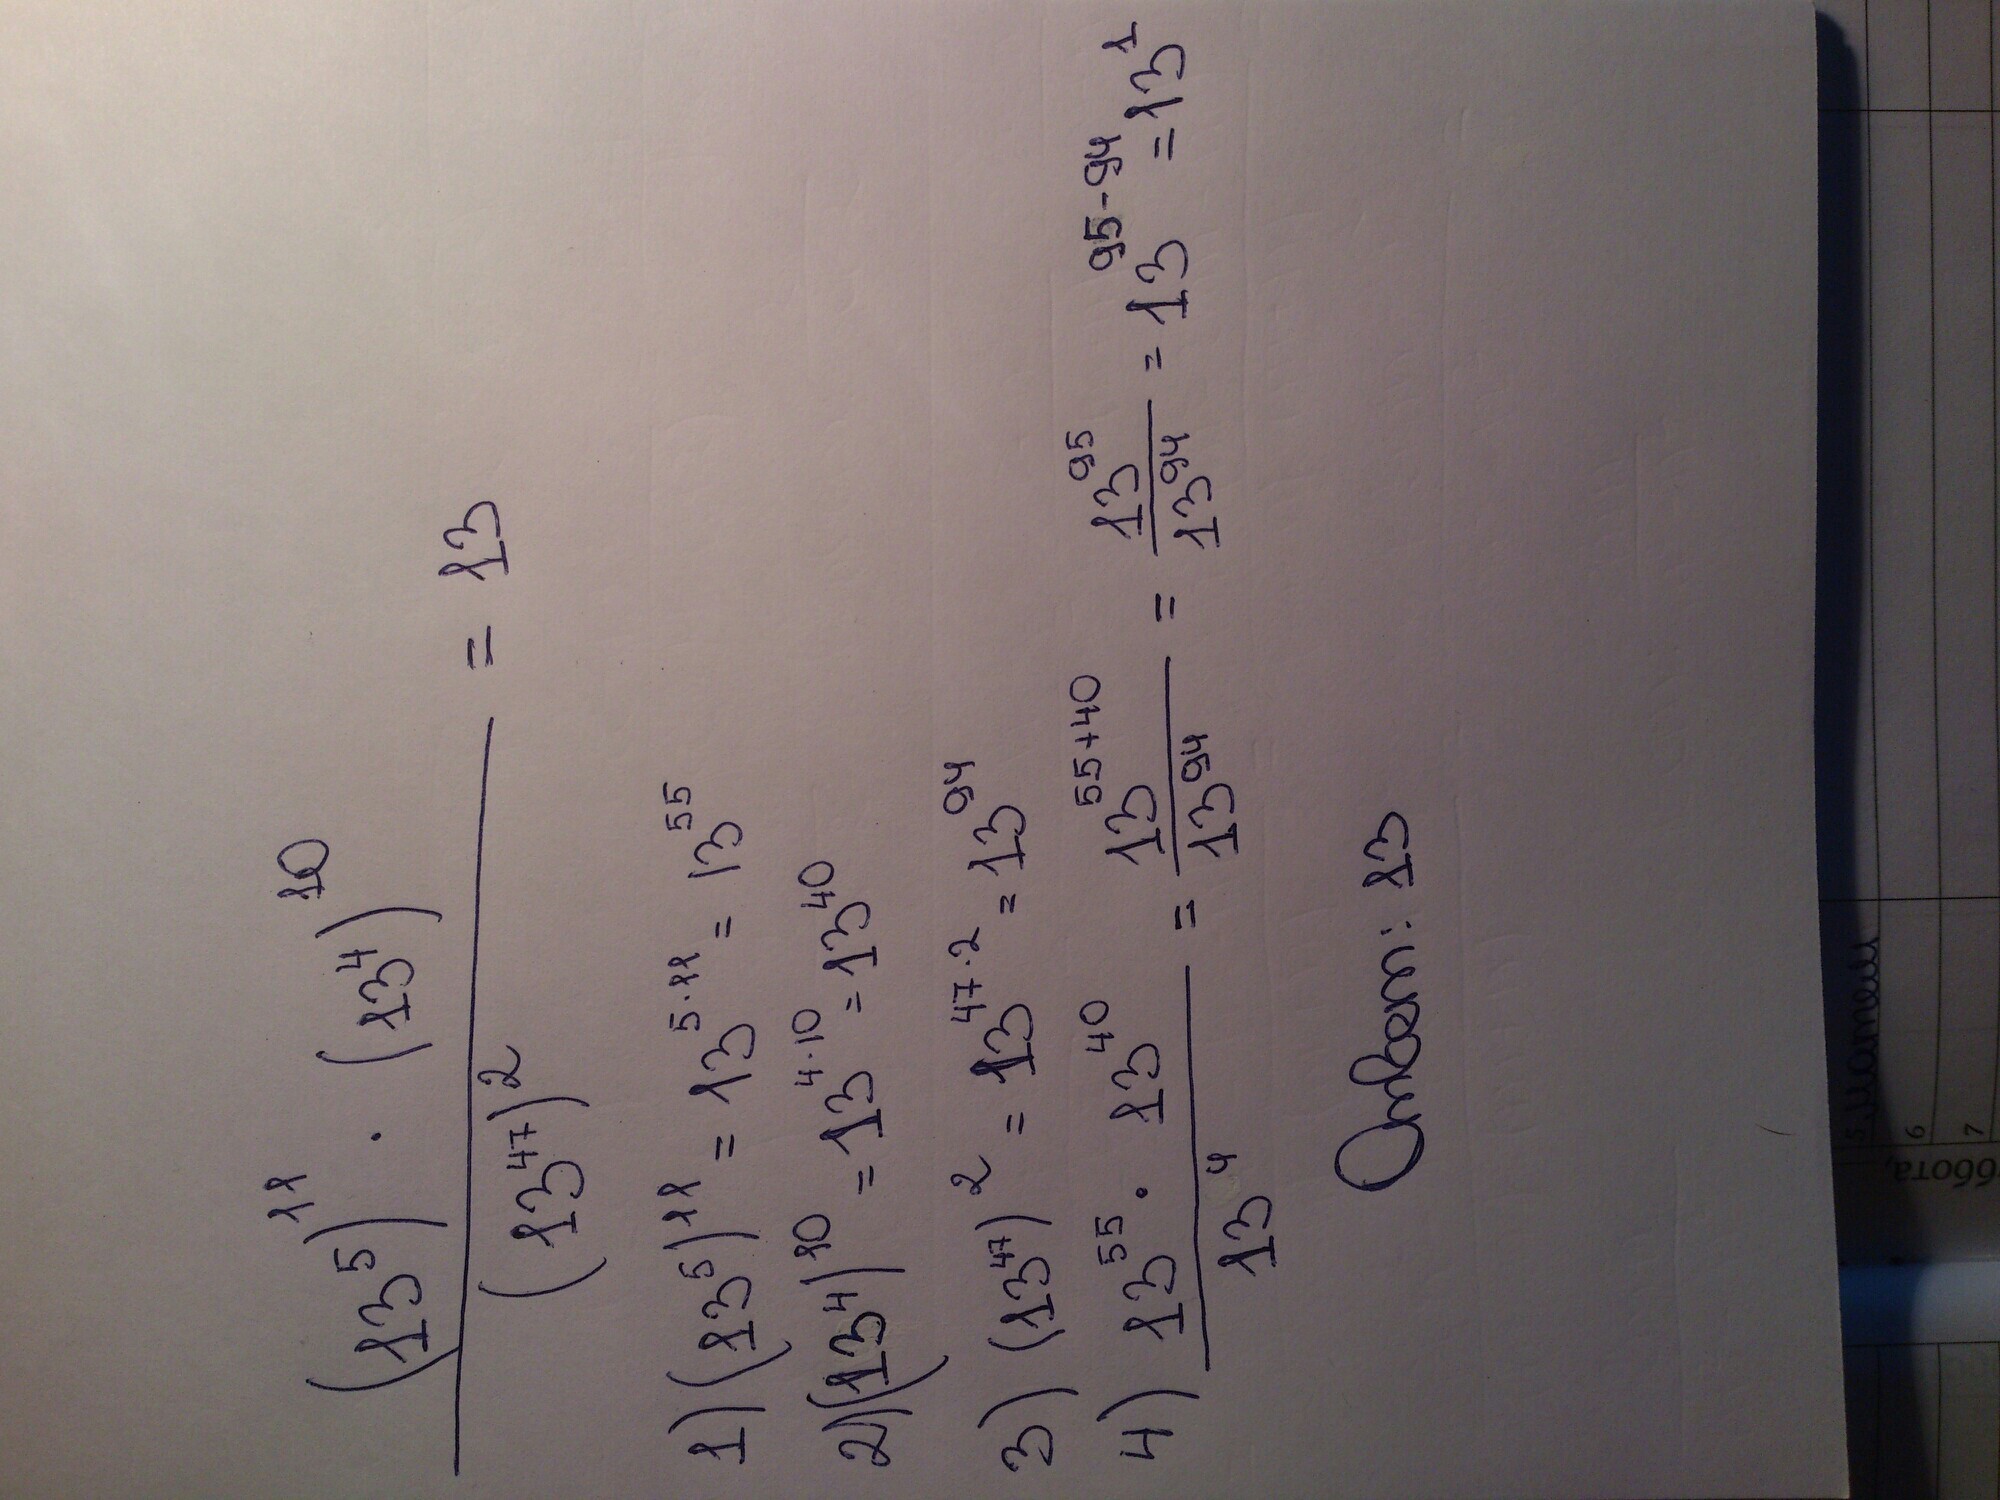 (13⁵)¹¹ · (13⁴)¹⁰ / (13⁴⁷)² = 13
1) (13⁵)¹¹ = 13⁵·¹¹ = 13⁵⁵
2) (13⁴)¹⁰ = 13⁴·¹⁰ = 13⁴⁰
3) (13⁴⁷)² = 13⁴⁷·² = 13⁹⁴
4) 13⁵⁵ · 13⁴⁰ / 13⁴ = 13⁵⁵⁺⁴⁰ / 13⁹⁴ = 13⁹⁵ / 13⁹⁴ = 13⁹⁵⁻⁹⁴ = 13¹
Ответ: 13
5
6
7